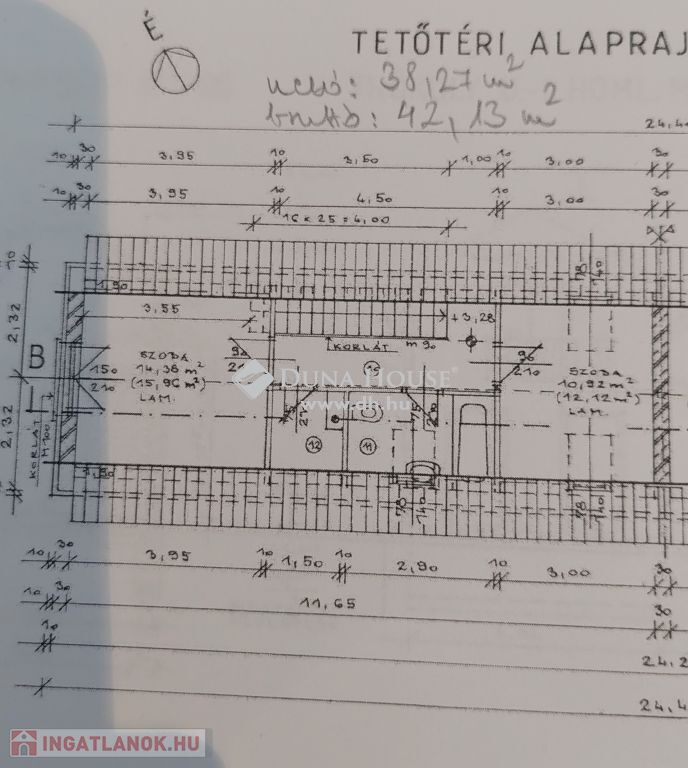 É
TETŐTÉRI ALAPRAJ
nettó: 38,27 m²
bruttó: 42,13 m²
24,4
10 30 3,95 10 3,50 1,00 10 3,00 30
10 30 3,95 10 4,50 10 3,00 30
16 x 25 = 4,00
10
2,32
2,32
B
1,90
3,55
+3,28
78
140
KORLÁT
m 90
150
210
SZOBA
14,36 m²
(15,96 m²)
LAM.
90
10
90
210
SZOBA
10,92 m²
(12,12 m²)
LAM.
DUNA HOUSE
www.dh.hu
75
210
75
210
12
11
KORLÁT
M 100
1,90
78
140
78
140
10 30 3,95 10 1,50 10 2,90 10 3,00 30
10 30 11,65 30
10 24,2
24,4
INGATLANOK.HU